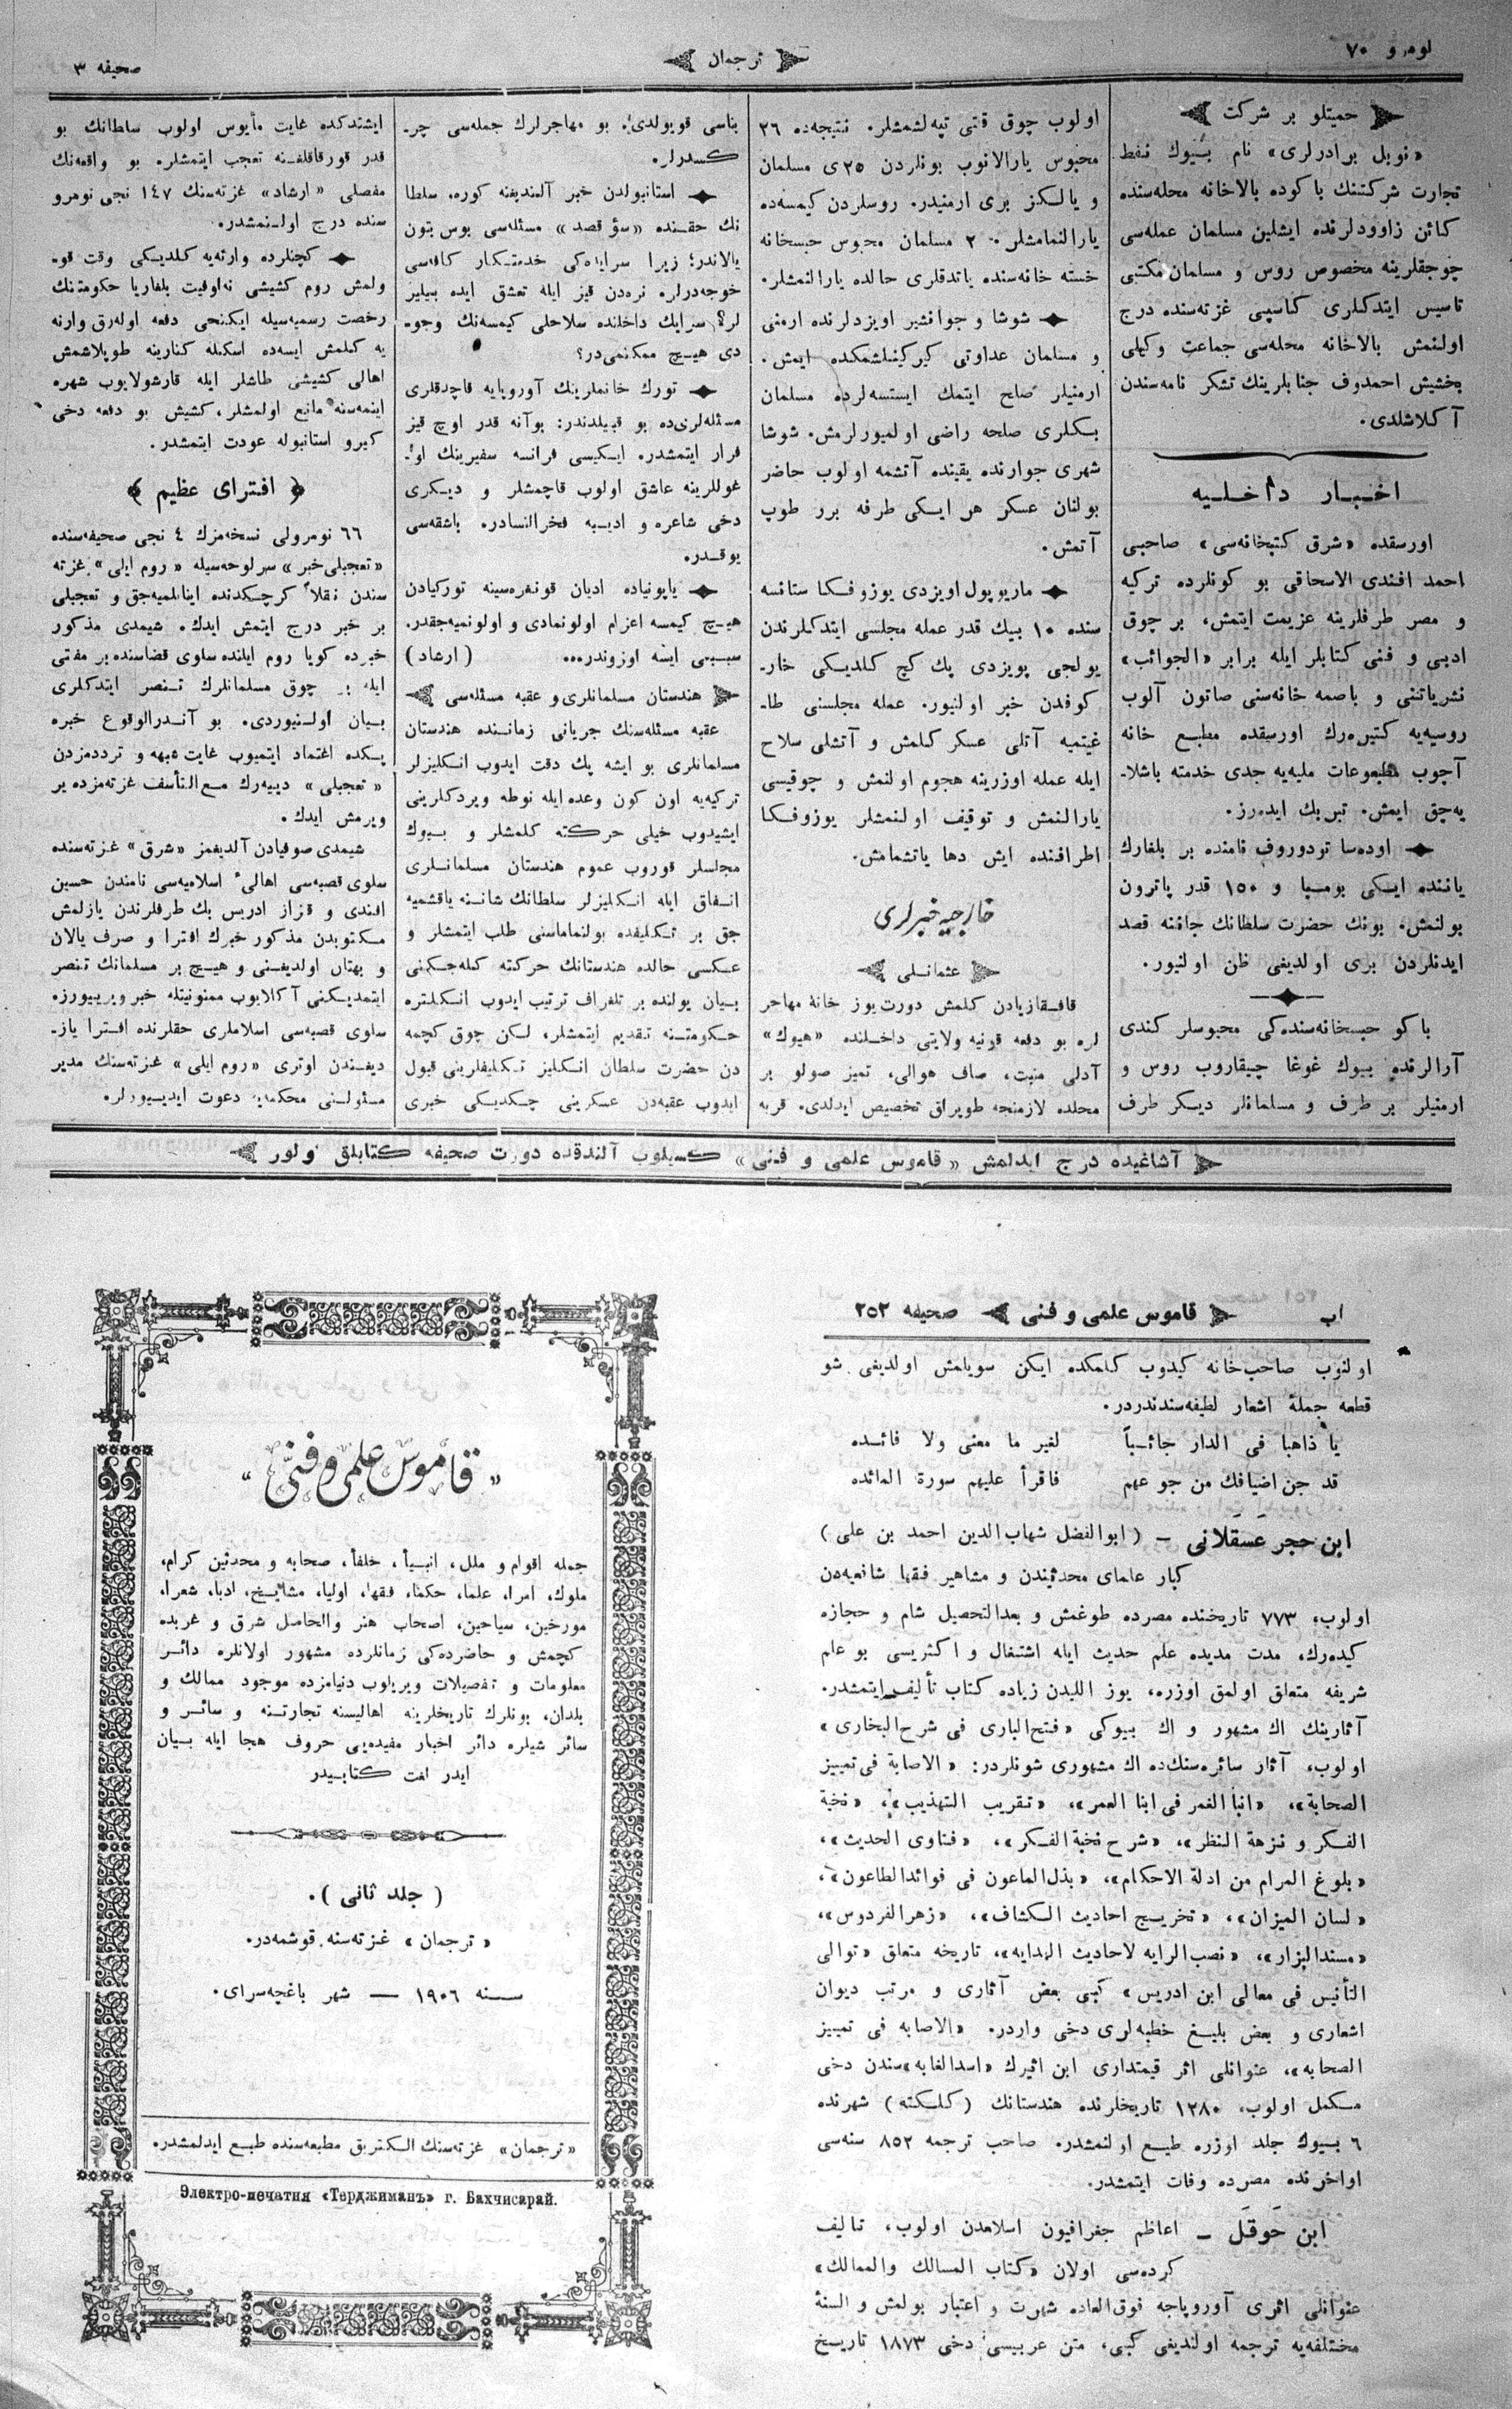 نومرو ٧٠
ترجمان
صحیفه ٣
حمیتلو بر شرکت
«نوبل برادرلری» نام بیوك نفط
تجارت شرکتنك باکوده بالاخانه محله‌سنده
کائن زاوودلرنده ایشلین مسلمان عمله‌سی
چوجقلرینه مخصوص روس و مسلمان مکتبی
تاسیس ایتدکلری کاسپی غزته‌سنده درج
اولنمش بالاخانه محله‌سی جماعت وکیلی
بخشیش احمدوف جنابلرینك تشکر نامه‌سندن
آکلاشلدی.
اخبار داخلیه
اورسقده «شرق کتبخانه‌سی» صاحبی
احمد افندی الاسحاقی بو کونلرده ترکیه
و مصر طرفلرینه عزیمت ایتمش، بر چوق
ادبی و فنی کتابلر ایله برابر «الجوائب»
نشریاتنی و باصمه خانه‌سنی صاتون آلوب
روسیه‌یه کتیره‌رك اورسقده مطبع خانه
آچوب مطبوعات ملیه‌یه جدی خدمته باشلا-
یه‌جق ایمش. تبریك ایده‌رز.
اوده‌سا تردوروف نامنده بر بلغارك
یاننده ایکی بومبا و ١٥٠ قدر پاترون
بولنمش. بونك حضرت سلطانك جاننه قصد
ایدنلردن بری اولدیغی ظن اولنیور.
باکو حبسخانه‌سنده‌کی محبوسلر کندی
آرالرنده بیوك غوغا چیقاروب روس و
ارمنیلر بر طرف و مسلمانلر دیکر طرف
اولوب چوق قتی تپه‌لشمشلر. نتیجه‌ده ٢٦
محبوس یارالانوب بونلردن ٢٥ی مسلمان
و یالکز بری ارمنیدر. روسلردن کیمسه‌ده
یارالنمامشلر. ٢ مسلمان محبوس حبسخانه
خسته خانه‌سنده یاتدقلری حالده یارالنمشلر.
شوشا و جوانشیر اویزدلرنده ارمنی
و مسلمان عداوتی کیرکینلشمکده ایمش.
ارمنیلر صلح ایتمك ایستسه‌لرده مسلمان
بکلری صلحه راضی اولمیورلرمش. شوشا
شهری جوارنده یقینده آتشمه اولوب حاضر
بولنان عسکر هر ایکی طرفه برر طوپ
آتمش.
ماریوپول اویزدی یوزوفکا ستانسه
سنده ١٠ بیك قدر عمله مجلسی ایتدکلرندن
یولجی پویزدی پك کچ کلدیکی خار-
کوفدن خبر اولنیور. عمله مجلسنی طا-
غیتمیه آتلی عسکر کلمش و آتشلی سلاح
ایله عمله اوزرینه هجوم اولنمش و چوقیسی
یارالنمش و توقیف اولنمشلر یوزوفکا
اطرافنده ایش دها یاتشمامش.
خارجیه خبرلری
عثمانلی
قافقازیادن کلمش دورت‌یوز خانهٔ مهاجر
لره بو دفعه قونیه ولایتی داخلنده «هیوك»
آدلی منبت، صاف هوالی، تمیز صولو بر
محلده لازمنجه طوپراق تخصیص ایدلدی. قریه
بناسی قویولدی. بو مهاجرلرك جمله‌سی چر-
کسدرلر.
استانبولدن خبر آلندیغنه کوره، سلطا
نك حقنده «سؤ قصد» مسئله‌سی بوس بتون
یالاندر؛ زیرا سرایده‌کی خدمتکار کافه‌سی
خوجه‌درلر. نره‌دن قیز ایله تعشق ایده بیلیر
لر؟ سرایك داخلنده سلاحلی کیمسه‌نك وجو-
دی هیچ ممکنمی‌در؟
تورك خانملرینك آوروپایه قاچدقلری
مسئله‌لری‌ده بو قبیلدندر: بوآنه قدر اوچ قیز
فرار ایتمشدر. ایکیسی فرانسه سفیرینك او-
غوللرینه عاشق اولوب قاچمشلر و دیکری
دخی شاعره و ادیبه فخرالنسادر. باشقه‌سی
یوقدر.
یاپونیاده ادیان قونفره‌سینه تورکیادن
هیچ کیمسه اعزام اولونمادی و اولونمیه‌جقدر.
سببی ایسه اوزوندر... (ارشاد)
هندستان مسلمانلری و عقبه مسئله‌سی
عقبه مسئله‌سنك جریانی زماننده هندستان
مسلمانلری بو ایشه پك دقت ایدوب انکلیزلر
ترکیه‌یه اون کون وعده ایله نوطه ویردکلرینی
ایشیدوب خیلی حرکته کلمشلر و بیوك
مجلسلر قوروب عموم هندستان مسلمانلری
اتفاق ایله انکلیزلر سلطانك شاننه یاقشمیه
جق بر تکلیفده بولنماماسنی طلب ایتمشلر و
عکسی حالده هندستانك حرکته کله‌جکنی
بیان یولنده بر تلغراف ترتیب ایدوب انکلتره
حکومتنه تقدیم ایتمشلر، لکن چوق کچمه
دن حضرت سلطان انکلیز تکلیفلرینی قبول
ایدوب عقبه‌دن عسکرینی چکدیکی خبری
ایشتدکده غایت مأیوس اولوب سلطانك بو
قدر قورقاقلغنه تعجب ایتمشلر. بو واقعه‌نك
مفصلی «ارشاد» غزته‌سنك ١٤٧ نجی نومرو
سنده درج اولنمشدر.
کچنلرده وارنه‌یه کلدیکی وقت قو-
ولمش روم کشیشی نه‌اوفیت بلغاریا حکومتنك
رخصت رسمیه‌سیله ایکنجی دفعه اوله‌رق وارنه
یه کلمش ایسه‌ده اسکله کنارینه طوپلاشمش
اهالی کشیشی طاشلر ایله قارشولایوب شهره
اینمه‌سنه مانع اولمشلر، کشیش بو دفعه دخی
کیرو استانبوله عودت ایتمشدر.
افترای عظیم
٦٦ نومرولی نسخه‌مزك ٤ نجی صحیفه‌سنده
«تعجبلی خبر» سرلوحه‌سیله «روم ایلی» غزته
سندن نقلاً کرچکدنده اینانلمیه‌جق و تعجبلی
بر خبر درج ایتمش ایدك. شیمدی مذکور
خبرده کویا روم ایلنده سلوی قضاسنده بر مفتی
ایله بر چوق مسلمانلرك تنصر ایتدکلری
بیان اولنیوردی. بو آندرالوقوع خبره
پکده اعتماد ایتمیوب غایت شبهه و ترددمزدن
«تعجبلی» دییه‌رك مع التأسف غزته‌مزده یر
ویرمش ایدك.
شیمدی صوفیادن آلدیغمز «شرق» غزته‌سنده
سلوی قصبه‌سی اهالیٔ اسلامیه‌سی نامندن حسین
افندی و قزاز ادریس بك طرفلرندن یازلمش
مکتوبدن مذکور خبرك افترا و صرف یالان
و بهتان اولدیغنی و هیچ بر مسلمانك تنصر
ایتمدیکنی آکلایوب ممنونیتله خبر ویرییورز.
سلوی قصبه‌سی اسلاملری حقلرنده افترا یاز-
دیغندن اوتری «روم ایلی» غزته‌سنك مدیر
مسئولنی محکمه‌یه دعوت ایدییورلر.
آشاغیده درج ایدلمش «قاموس علمی و فنی» کسیلوب آلندقده دورت صحیفه کتابلق اولور
اب
قاموس علمی و فنی
صحیفه ٢٥٢
اولنوب صاحب‌خانه کیدوب کلمکده ایکن سویلمش اولدیغی شو
قطعه جملهٔ اشعار لطیفه‌سندندردر.
یا ذاهبا فی الدار جائیاً لغیر ما معنی ولا فائده
قد جن اضیافك من جوعهم فاقرأ علیهم سورة المائده
ابن حجر عَسقَلانی – (ابوالفضل شهاب‌الدین احمد بن علی)
کبار علمای محدثیندن و مشاهیر فقها شافعیه‌دن
اولوب، ٧٧٣ تاریخنده مصرده طوغمش و بعدالتحصیل شام و حجازه
کیده‌رك، مدت مدیده علم حدیث ایله اشتغال و اکثریسی بو علم
شریفه متعلق اولمق اوزره، یوز اللیدن زیاده کتاب تألیف ایتمشدر.
آثارینك اك مشهور و اك بیوکی «فتح‌الباری فی شرح‌البخاری»
اولوب، آثار سائره‌سنك‌ده اك مشهوری شونلردر: «الاصابة فی تمییز
الصحابة»، «انبا الغمر فی ابنا العمر»، «تقریب التهذیب»، «نخبة
الفکر و نزهة النظر»، «شرح نخبة الفکر»، «فتاوی الحدیث»،
«بلوغ المرام من ادلة الاحکام»، «بذل‌الماعون فی فوائدالطاعون»،
«لسان المیزان»، «تخریج احادیث الکشاف»، «زهرالفردوس»،
«مسندالبزار»، «نصب‌الرایه لاحادیث الهدایه»، تاریخه متعلق «توالی
التأنیس فی معالی ابن ادریس» کبی بعض آثاری و مرتب دیوان
اشعاری و بعض بلیغ خطبه‌لری دخی واردر. «الاصابه فی تمییز
الصحابه»، عنوانلی اثر قیمتداری ابن اثیرك «اسدالغابه»سندن دخی
مکمل اولوب، ١٢٨٠ تاریخلرنده هندستانك (کلکته) شهرنده
٦ بیوك جلد اوزره طبع اولنمشدر. صاحب ترجمه ٨٥٢ سنه‌سی
اواخرنده مصرده وفات ایتمشدر.
ابن حَوقَل – اعاظم جغرافیون اسلامدن اولوب، تالیف
کرده‌سی اولان «کتاب المسالك والممالك»
عنوانلی اثری آوروپاجه فوق‌العاده شهرت و اعتبار بولمش و السنهٔ
مختلفه‌یه ترجمه اولندیغی کبی، متن عربیسی دخی ١٨٧٣ تاریخ
«قاموس علمی و فنی»
جمله اقوام و ملل، انبیأ، خلفأ، صحابه و محدثین کرام،
ملوك، امرا، علما، حکما، فقها، اولیا، مشایخ، ادبا، شعرا،
مورخین، سیاحین، اصحاب هنر والحاصل شرق و غربده
کچمش و حاضرده‌کی زمانلرده مشهور اولانلره دائر
معلومات و تفصیلات ویریلوب دنیامزده موجود ممالك و
بلدان، بونلرك تاریخلرینه اهالیسنه تجارتنه و سائر و
سائر شیلره دائر اخبار مفیده‌یی حروف هجا ایله بیان
ایدر لغت کتابیدر
(جلد ثانی).
«ترجمان» غزته‌سنه قوشمه‌در.
سنه ١٩٠٦ — شهر باغچه‌سرای.
«ترجمان» غزته‌سنك الکتریق مطبعه‌سنده طبع ایدلمشدر.
Электро-печатня «Терджиманъ» г. Бахчисарай.